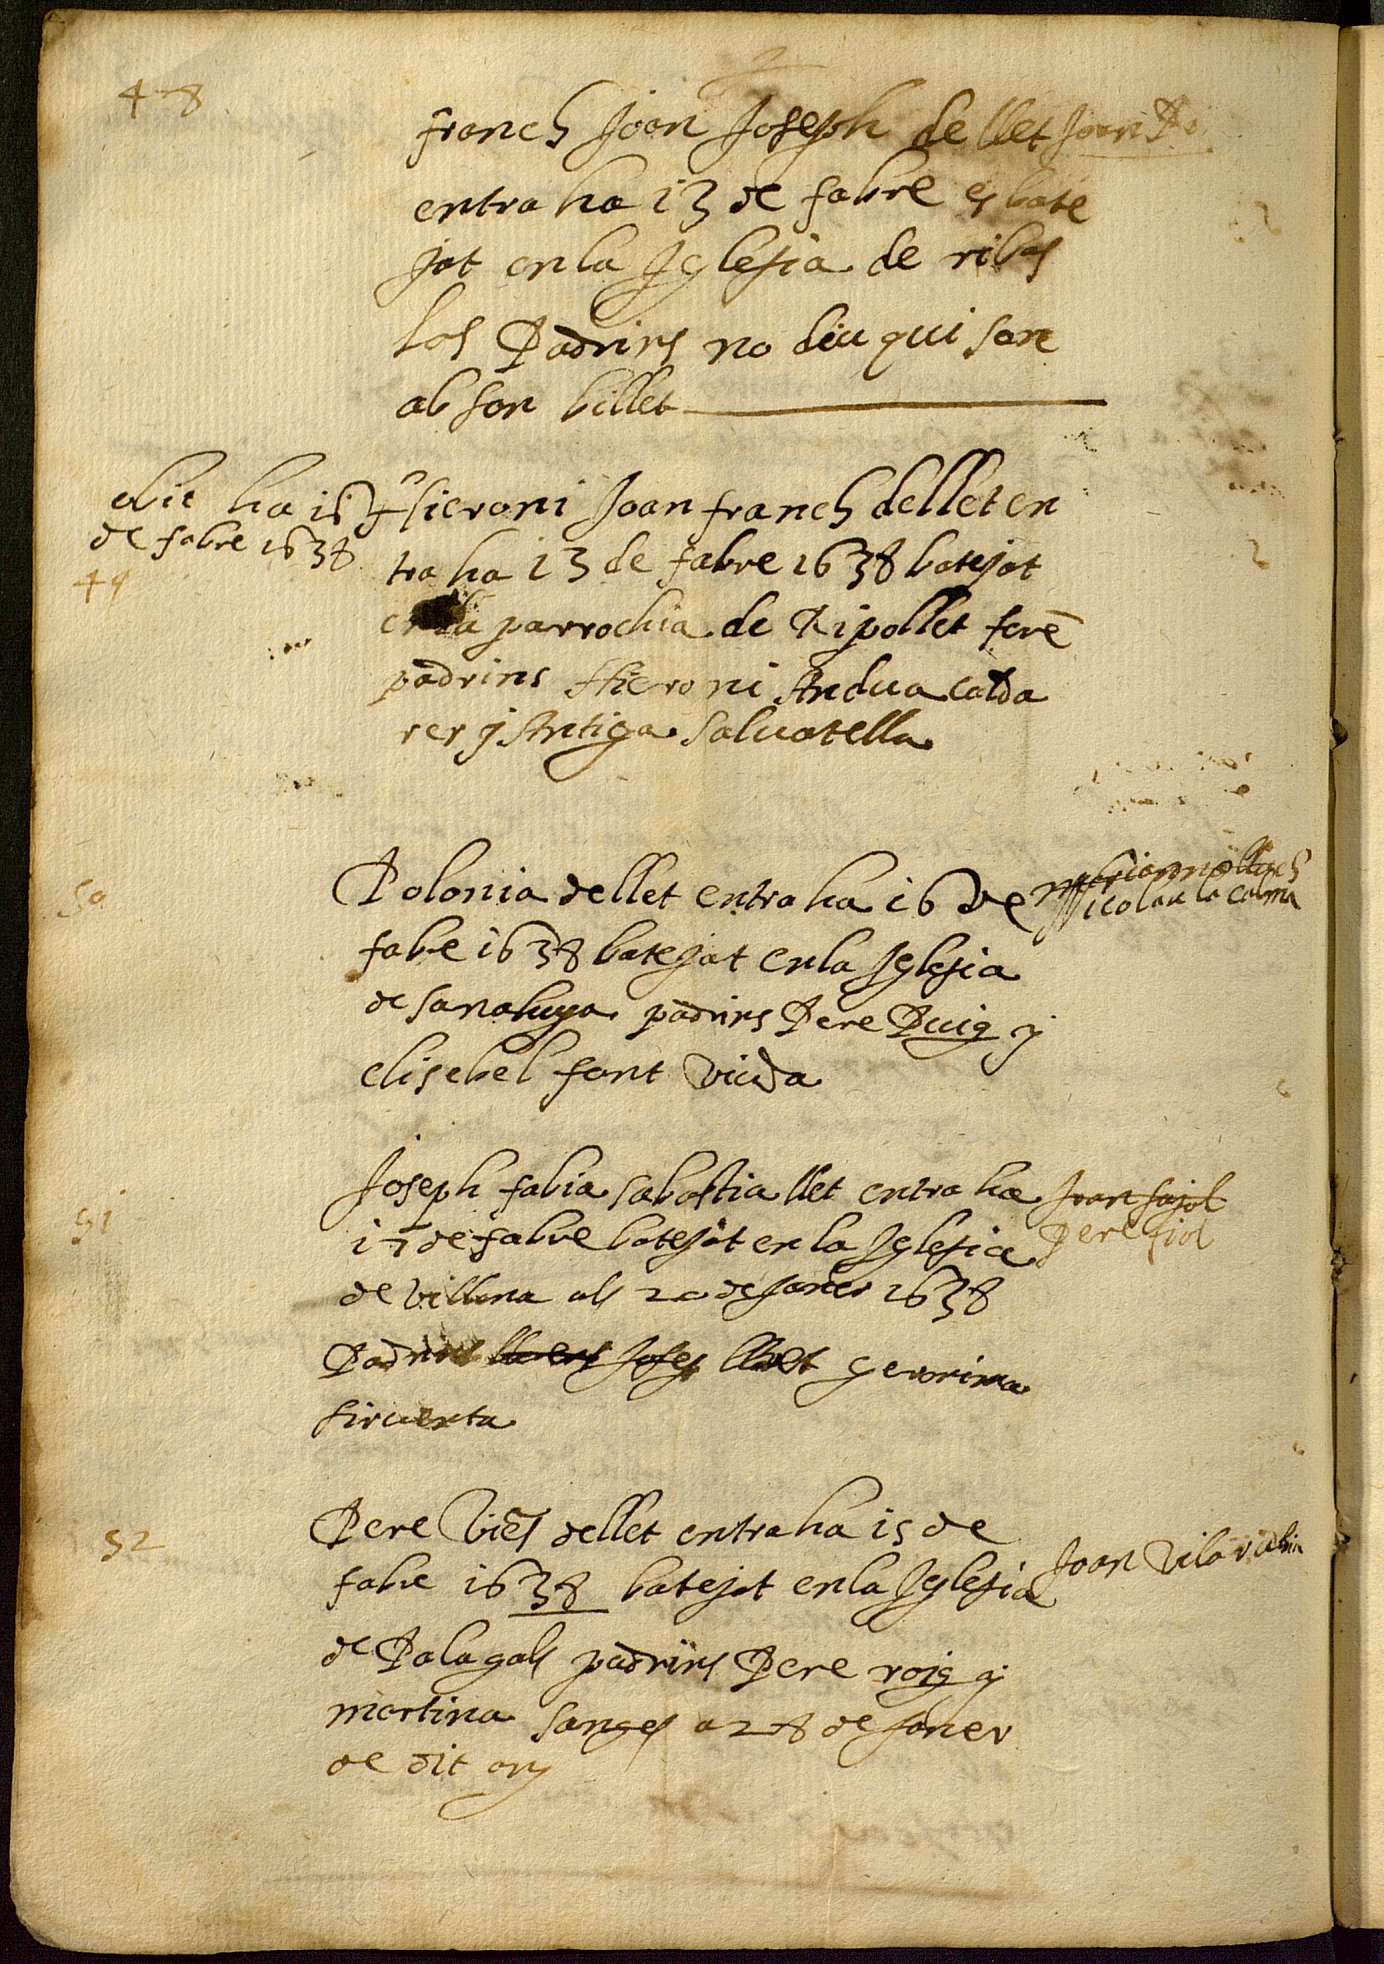 48
franch Joan Joseph de llet Joan
entra ha 13 de fabre es bate
jat en la Iglesia de ribas
los Padrins no diu qui son
ab son billet
obit ha 16
de fabre 1638
49
Hieroni Joan franch de llet en
tra ha 13 de fabre 1638 batejat
en la parrochia de Ripollet forē
padrins Hieroni Andua calda
rer y Antiga Saluatella
50
Polonia de llet entra ha 16 de
Nicolau la Calma
fabre 1638 batejat en la Iglesia
de Sanahuya padrins Pere Puig y
elisebel font viuda
51
Joseph fabia sabastia llet entra ha
Joan fajol
17 de fabre batejat en la Iglesia
Pere fiol
de Villana als 20 de Janer 1638
Padrins Josep llet y geronima
sircuenta
52
Pere Vies de llet entra ha 15 de
fabre 1638 batejat en la Iglesia
Joan Vilarubia
de Palagals padrins Pere roig y
martina Sanges a 28 de Janer
de dit any